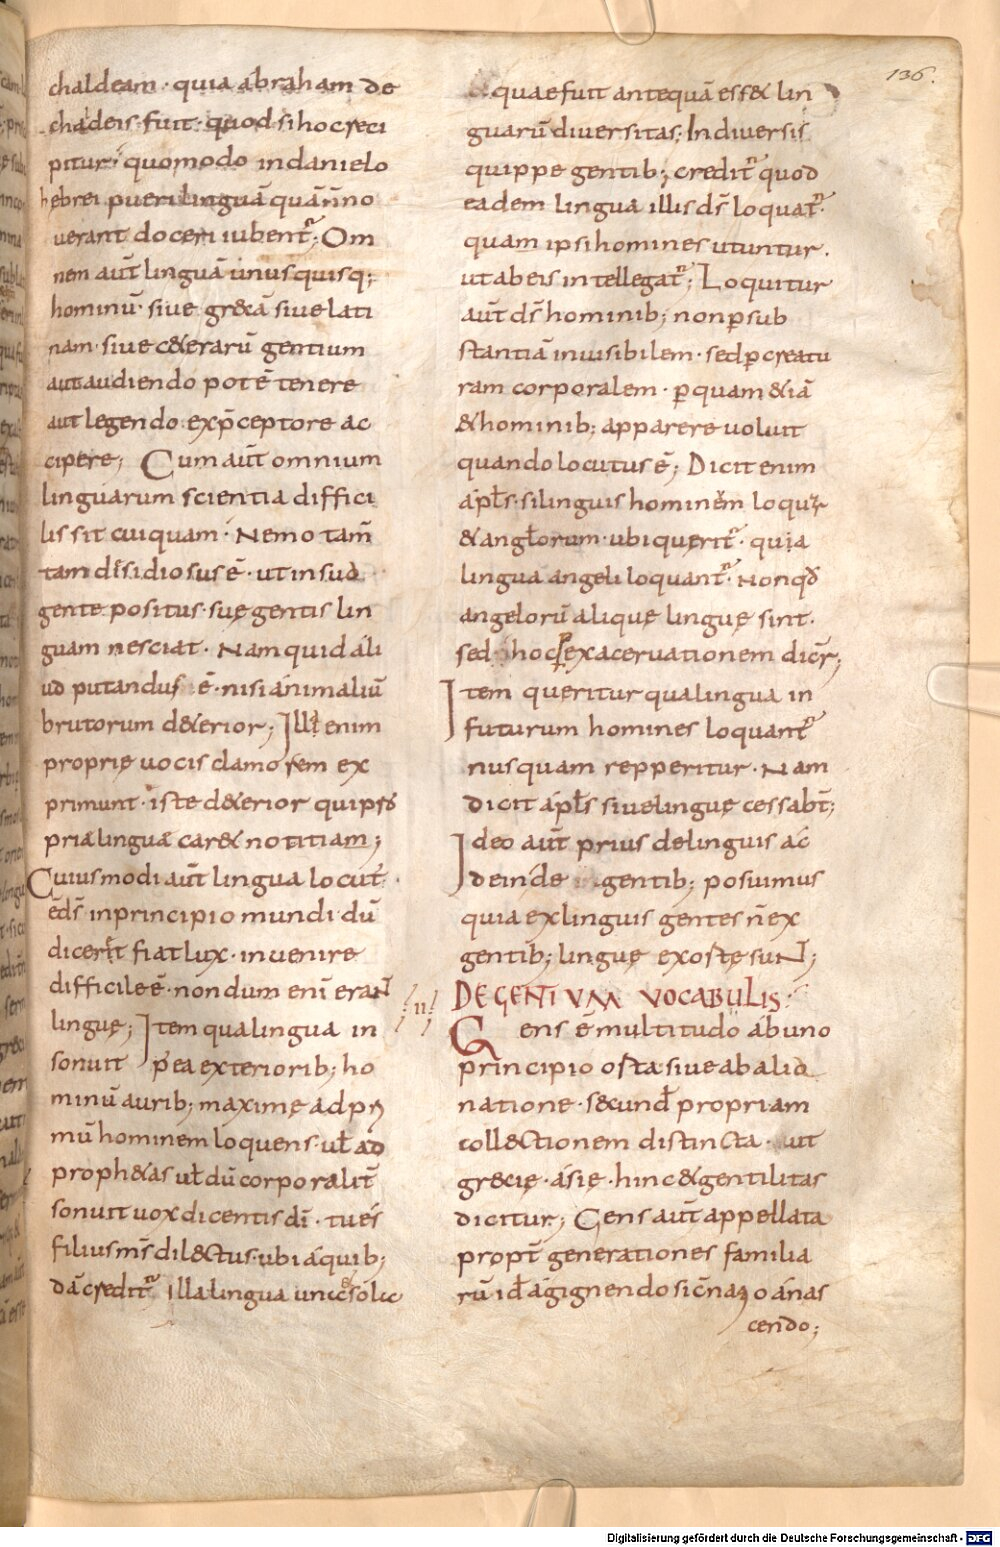 136.
chaldeam · quia abraham de
chadeis · fuit · quod si hoc reci
pitur · quomodo in danielo
hebrei pueri linguā quā n̄ no
uerant doceri iubent᷑; Om
nem aut̄ linguā unus quisq;
hominū · siue gr&ā siue lati
nam · siue c&erarū gentium
aut audiendo pot ē tenere
aut legendo · ex p̄ceptore ac
cipere; Cum aut̄ omnium
linguarum scientia diffici
lis sit cuiquam · Nemo tam̄
tam desidiosus ē · ut in sua
gente positus · suę gentis lin
guam nesciat · Nam quid ali
ud putandus ē · nisi animaliū
brutorum d&erior; Illę enim
proprię uocis clamorem ex
primunt · iste d&erior qui pro
pria linguę car& notitiam;
Cuius modi aut̄ lingua locut᷑
ē ds̄ · in principio mundi dū
dicer& fiat lux · inuenire
difficile ē · nondum enī eraNT
linguę; Item qua lingua in
sonuit p ea exteriorib; ho
minū aurib; maximę ad pri
mū hominem loquens · ul̄ ad
proph&as ul̄ dū corporalit̄
sonuit uox dicentis dī · tu es
filius ms̄ dil&tus · ubi a quib;
dā credit᷑ illa lingua unic& sole
quae fuit antequā ess& lin
guarū diuersitas; In diuersis
quippe gentib; credit᷑ quod
eadem lingua illis ds̄ loquat᷑ ·
quam ipsi homines utuntur ·
ut ab eis intellegat᷑; Loquitur
aut̄ ds̄ hominib; non p sub
stantiā inuisibilem · sed p creatu
ram corporalem · p quam & iā
& hominib; apparere uoluit
quando locutus ē; Dicit enim
apl̄s · si linguis hominēm loqur
& angl̄orum · ubi querit᷑ · quia
lingua angeli loquant᷑ · Non qd̄
angelorū alique linguę sint ·
sed hoc p exaceruationem dicr̄;
Item queritur qua lingua in
futurum homines loquant᷑
nusquam repperitur · Nam
dicit apl̄s siue linguę cessabt̄;
Ideo aut̄ prius de linguis ac
deinde gentib; posuimus
quia ex linguis gentes n̄ ex
gentib; linguę exostę suNT;
II DE GENTIUM VOCABULIS ·
Gens ē multitudo ab uno
principio osta siue ab alia
natione · s&cund̄ propriam
coll&tionem distincta · ut
gr&cię · asię · hinc & gentilitas
dicitur; Gens aut̄ appellata
propt̄ generationes familia
rū id̄ a gignendo sic natio a nas
cendo;
Digitalisierung gefördert durch die Deutsche Forschungsgemeinschaft - DFG